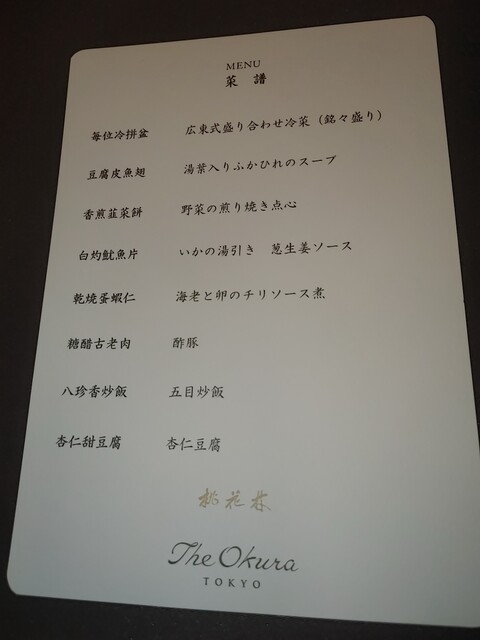 MENU
菜 譜
每位冷拼盆 広東式盛り合わせ冷菜（銘々盛り）
豆腐皮魚翅 湯葉入りふかひれのスープ
香煎韮菜餅 野菜の煎り焼き点心
白灼魷魚片 いかの湯引き 葱生姜ソース
乾燒蛋蝦仁 海老と卵のチリソース煮
糖醋古老肉 酢豚
八珍香炒飯 五目炒飯
杏仁甜豆腐 杏仁豆腐
桃花林
The Okura
TOKYO